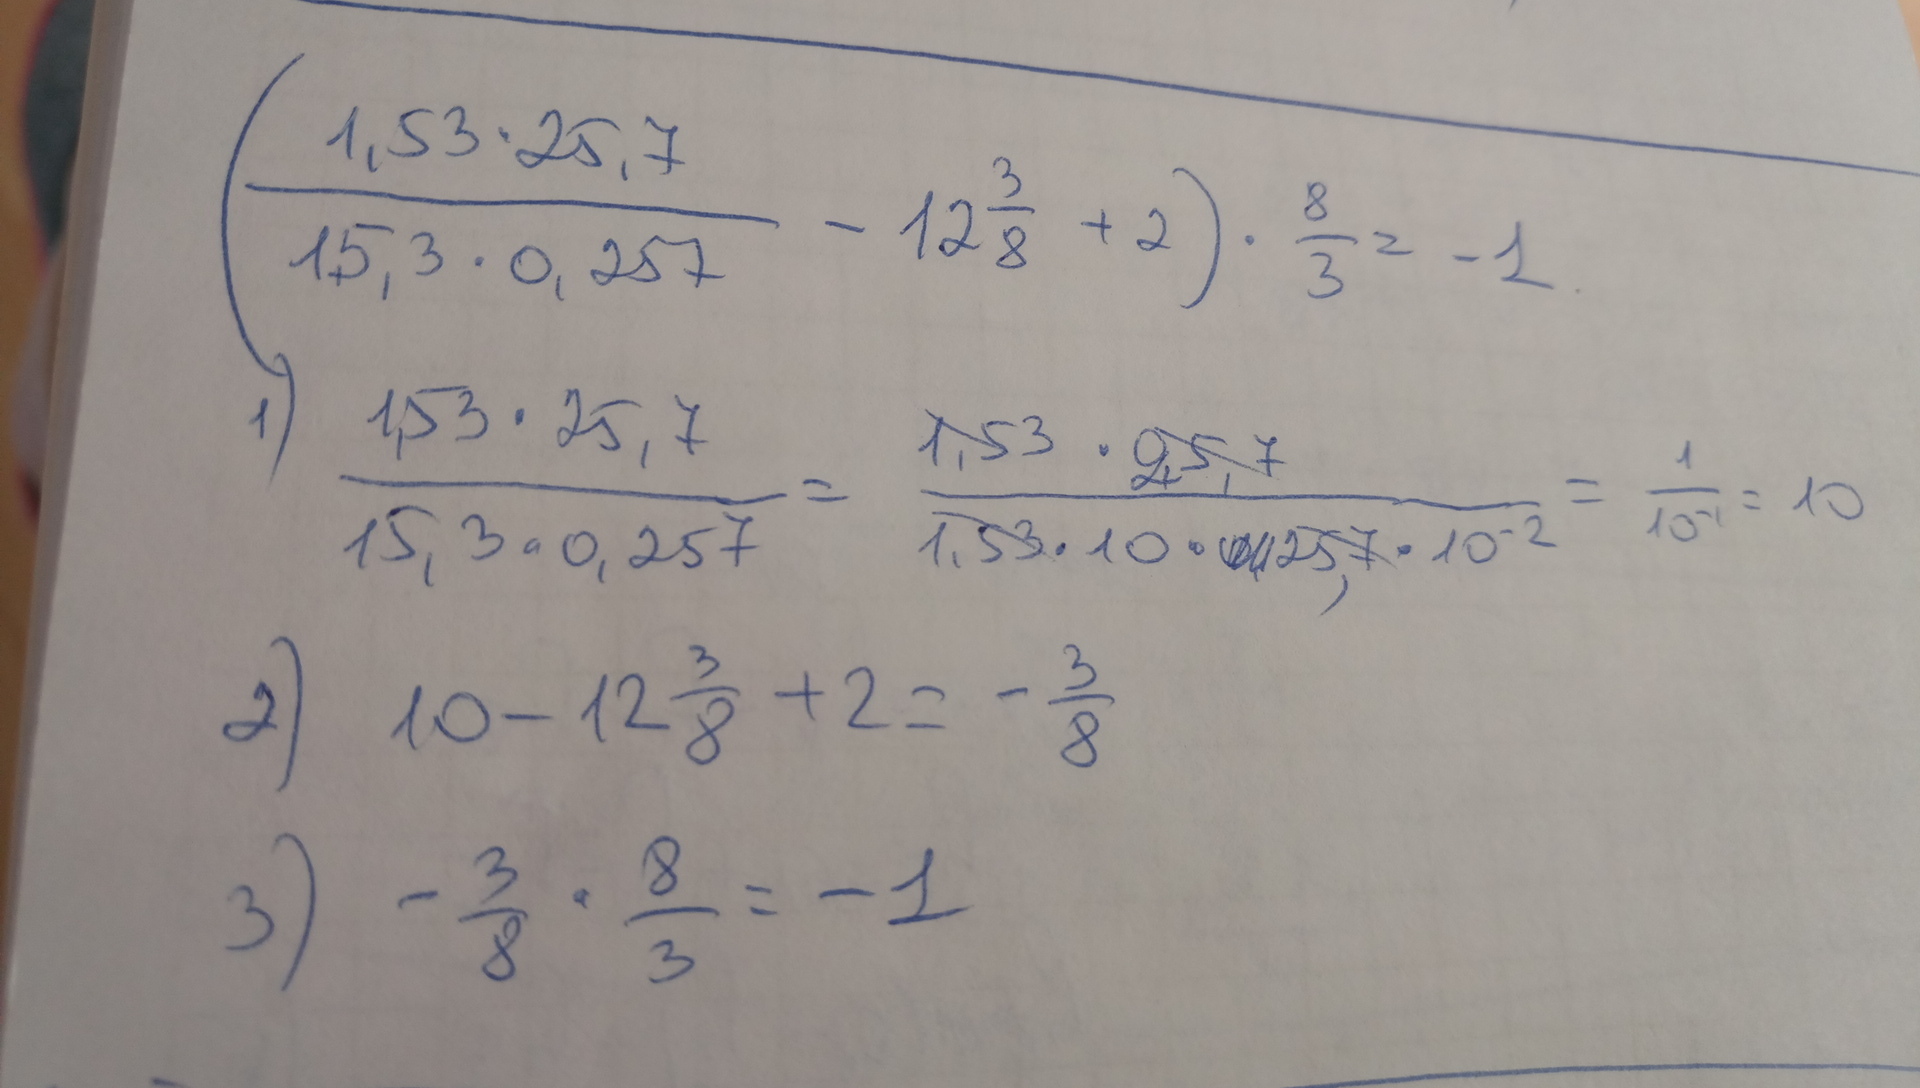 (1,53·25,7/15,3·0,257 - 12 3/8 + 2) · 8/3 = -1.
1) 1,53·25,7/15,3·0,257 = 1,53·25,7/1,53·10·25,7·10⁻² = 1/10⁻¹ = 10
2) 10 - 12 3/8 + 2 = - 3/8
3) - 3/8 · 8/3 = -1